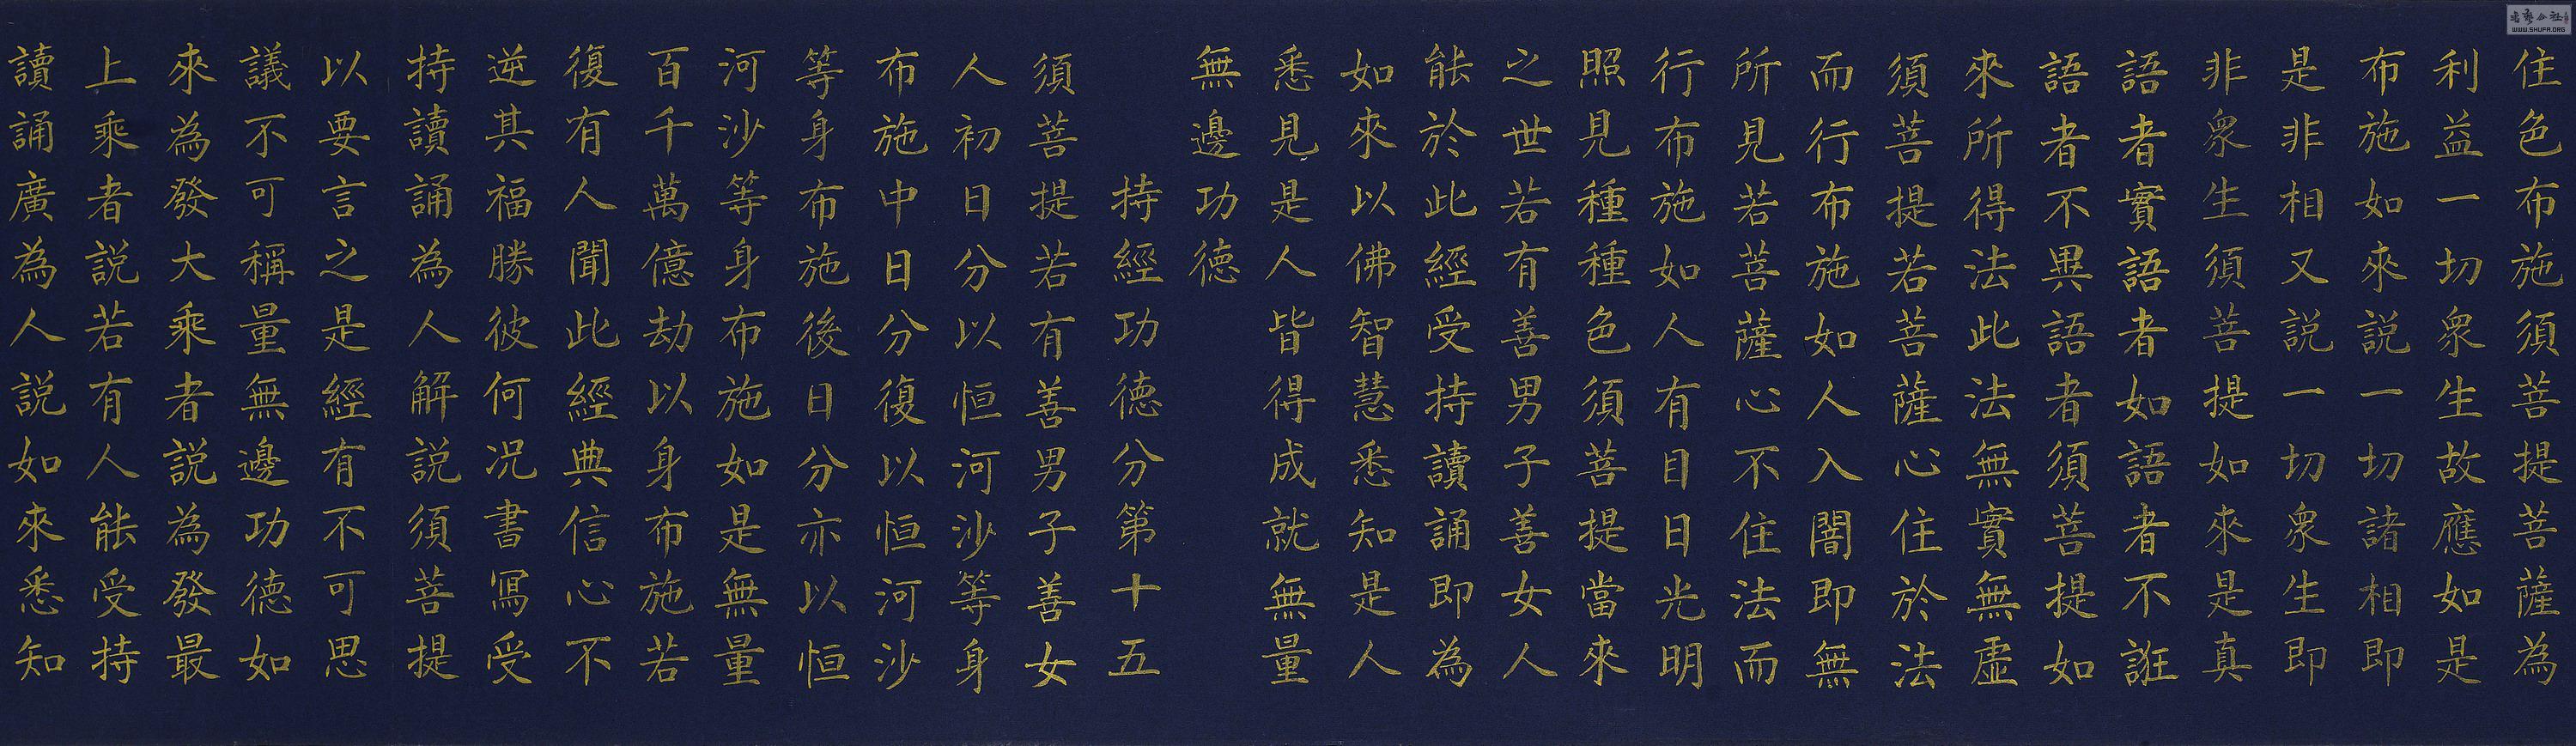 住色布施須菩提菩薩為
利益一切衆生故應如是
布施如來説一切諸相即
是非相又説一切衆生即
非衆生須菩提如來是真
語者實語者如語者不誑
語者不異語者須菩提如
來所得法此法無實無虛
須菩提若菩薩心住於法
而行布施如人入闇即無
所見若菩薩心不住法而
行布施如人有目日光明
照見種種色須菩提當來
之世若有善男子善女人
能於此經受持讀誦即為
如來以佛智慧悉知是人
悉見是人皆得成就無量
無邊功德
持經功德分第十五
須菩提若有善男子善女
人初日分以恒河沙等身
布施中日分復以恒河沙
等身布施後日分亦以恒
河沙等身布施如是無量
百千萬億劫以身布施若
復有人聞此經典信心不
逆其福勝彼何況書寫受
持讀誦為人解説須菩提
以要言之是經有不可思
議不可稱量無邊功德如
來為發大乘者説為發最
上乘者説若有人能受持
讀誦廣為人説如來悉知
WWW.SHUFA.ORG